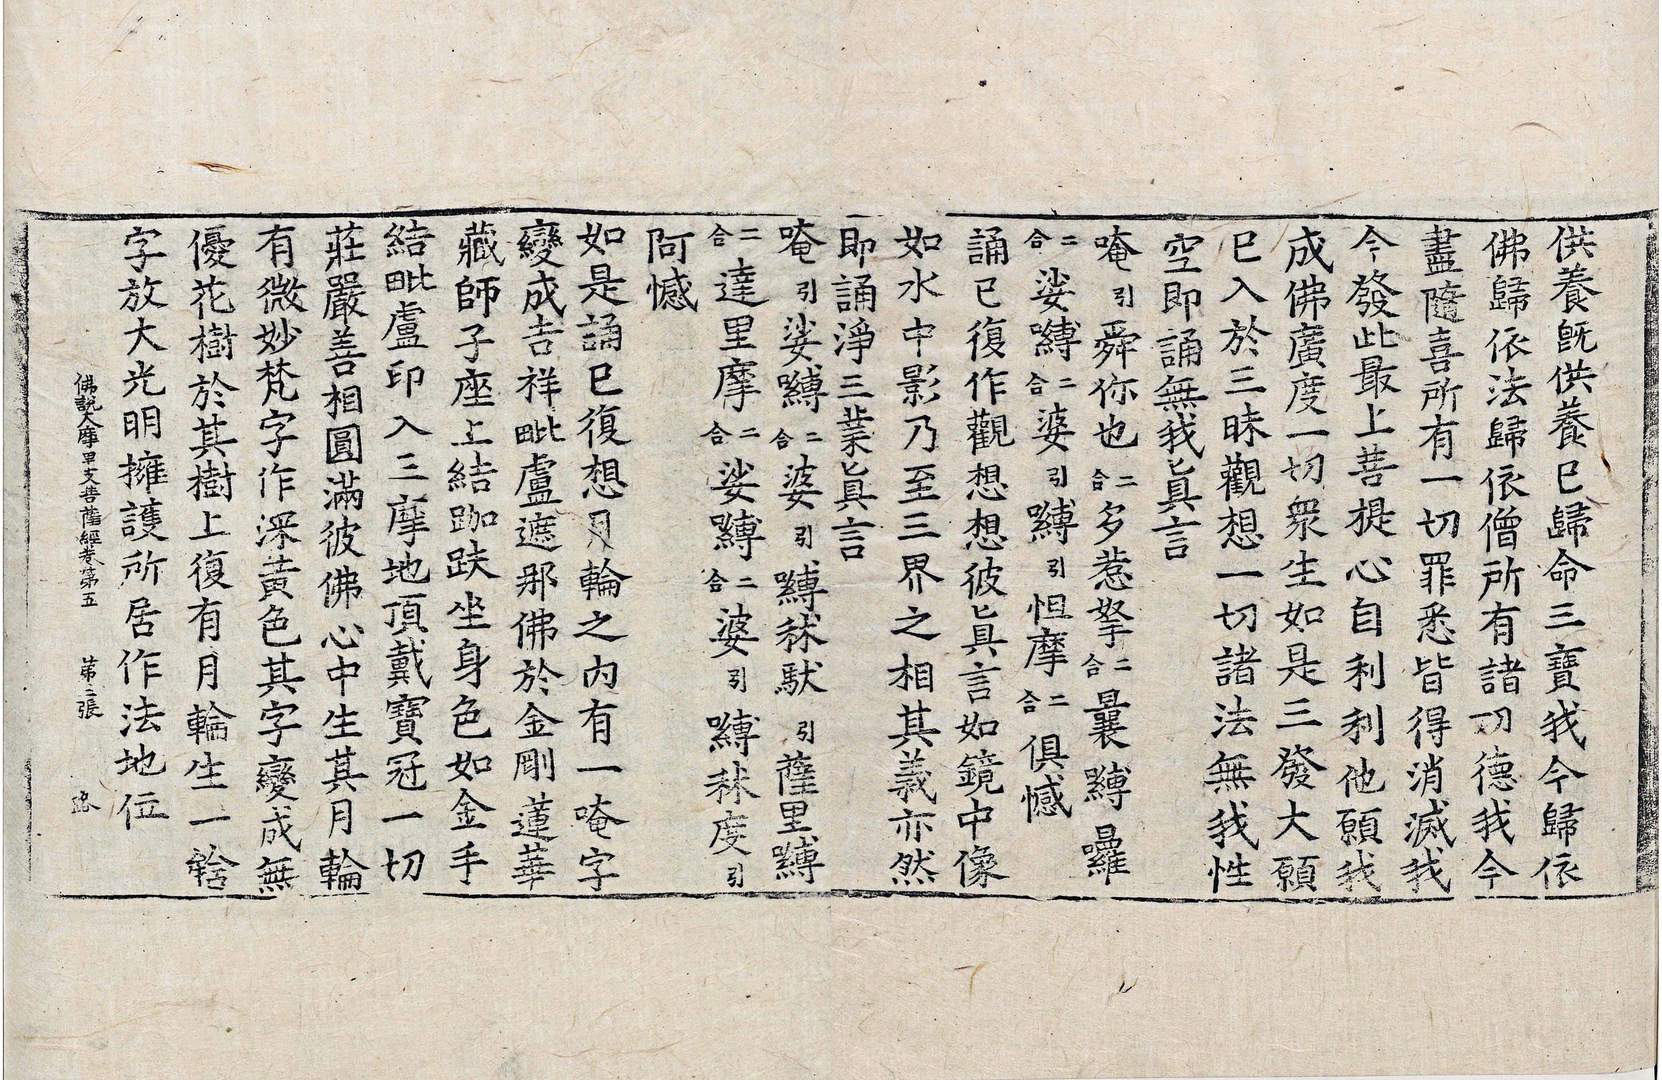 供養旣供養已歸命三寶我今歸依
佛歸依法歸依僧所有諸功德我今
盡隨喜所有一切罪悉皆得消滅我
今發此最上菩提心自利利他願我
成佛廣度一切衆生如是三發大願
已入於三昧觀想一切諸法無我性
空即誦無我眞言
唵引舜你也二合多惹拏二合曩嚩囉
二合娑嚩二合婆引嚩引怛摩二合俱憾
誦已復作觀想想彼眞言如鏡中像
如水中影乃至三界之相其義亦然
即誦淨三業眞言
唵引娑嚩二合婆引嚩秫馱引薩里嚩
二合達里摩二合娑嚩二合婆引嚩秫度引
阿憾
如是誦已復想月輪之內有一唵字
變成吉祥毗盧遮那佛於金剛蓮華
藏師子座上結跏趺坐身色如金手
結毗盧印入三摩地頂戴寶冠一切
莊嚴善相圓滿彼佛心中生其月輪
有微妙梵字作深黃色其字變成無
優花樹於其樹上復有月輪生一
字放大光明擁護所居作法地位
佛說大摩里支菩薩經卷第五 第二張